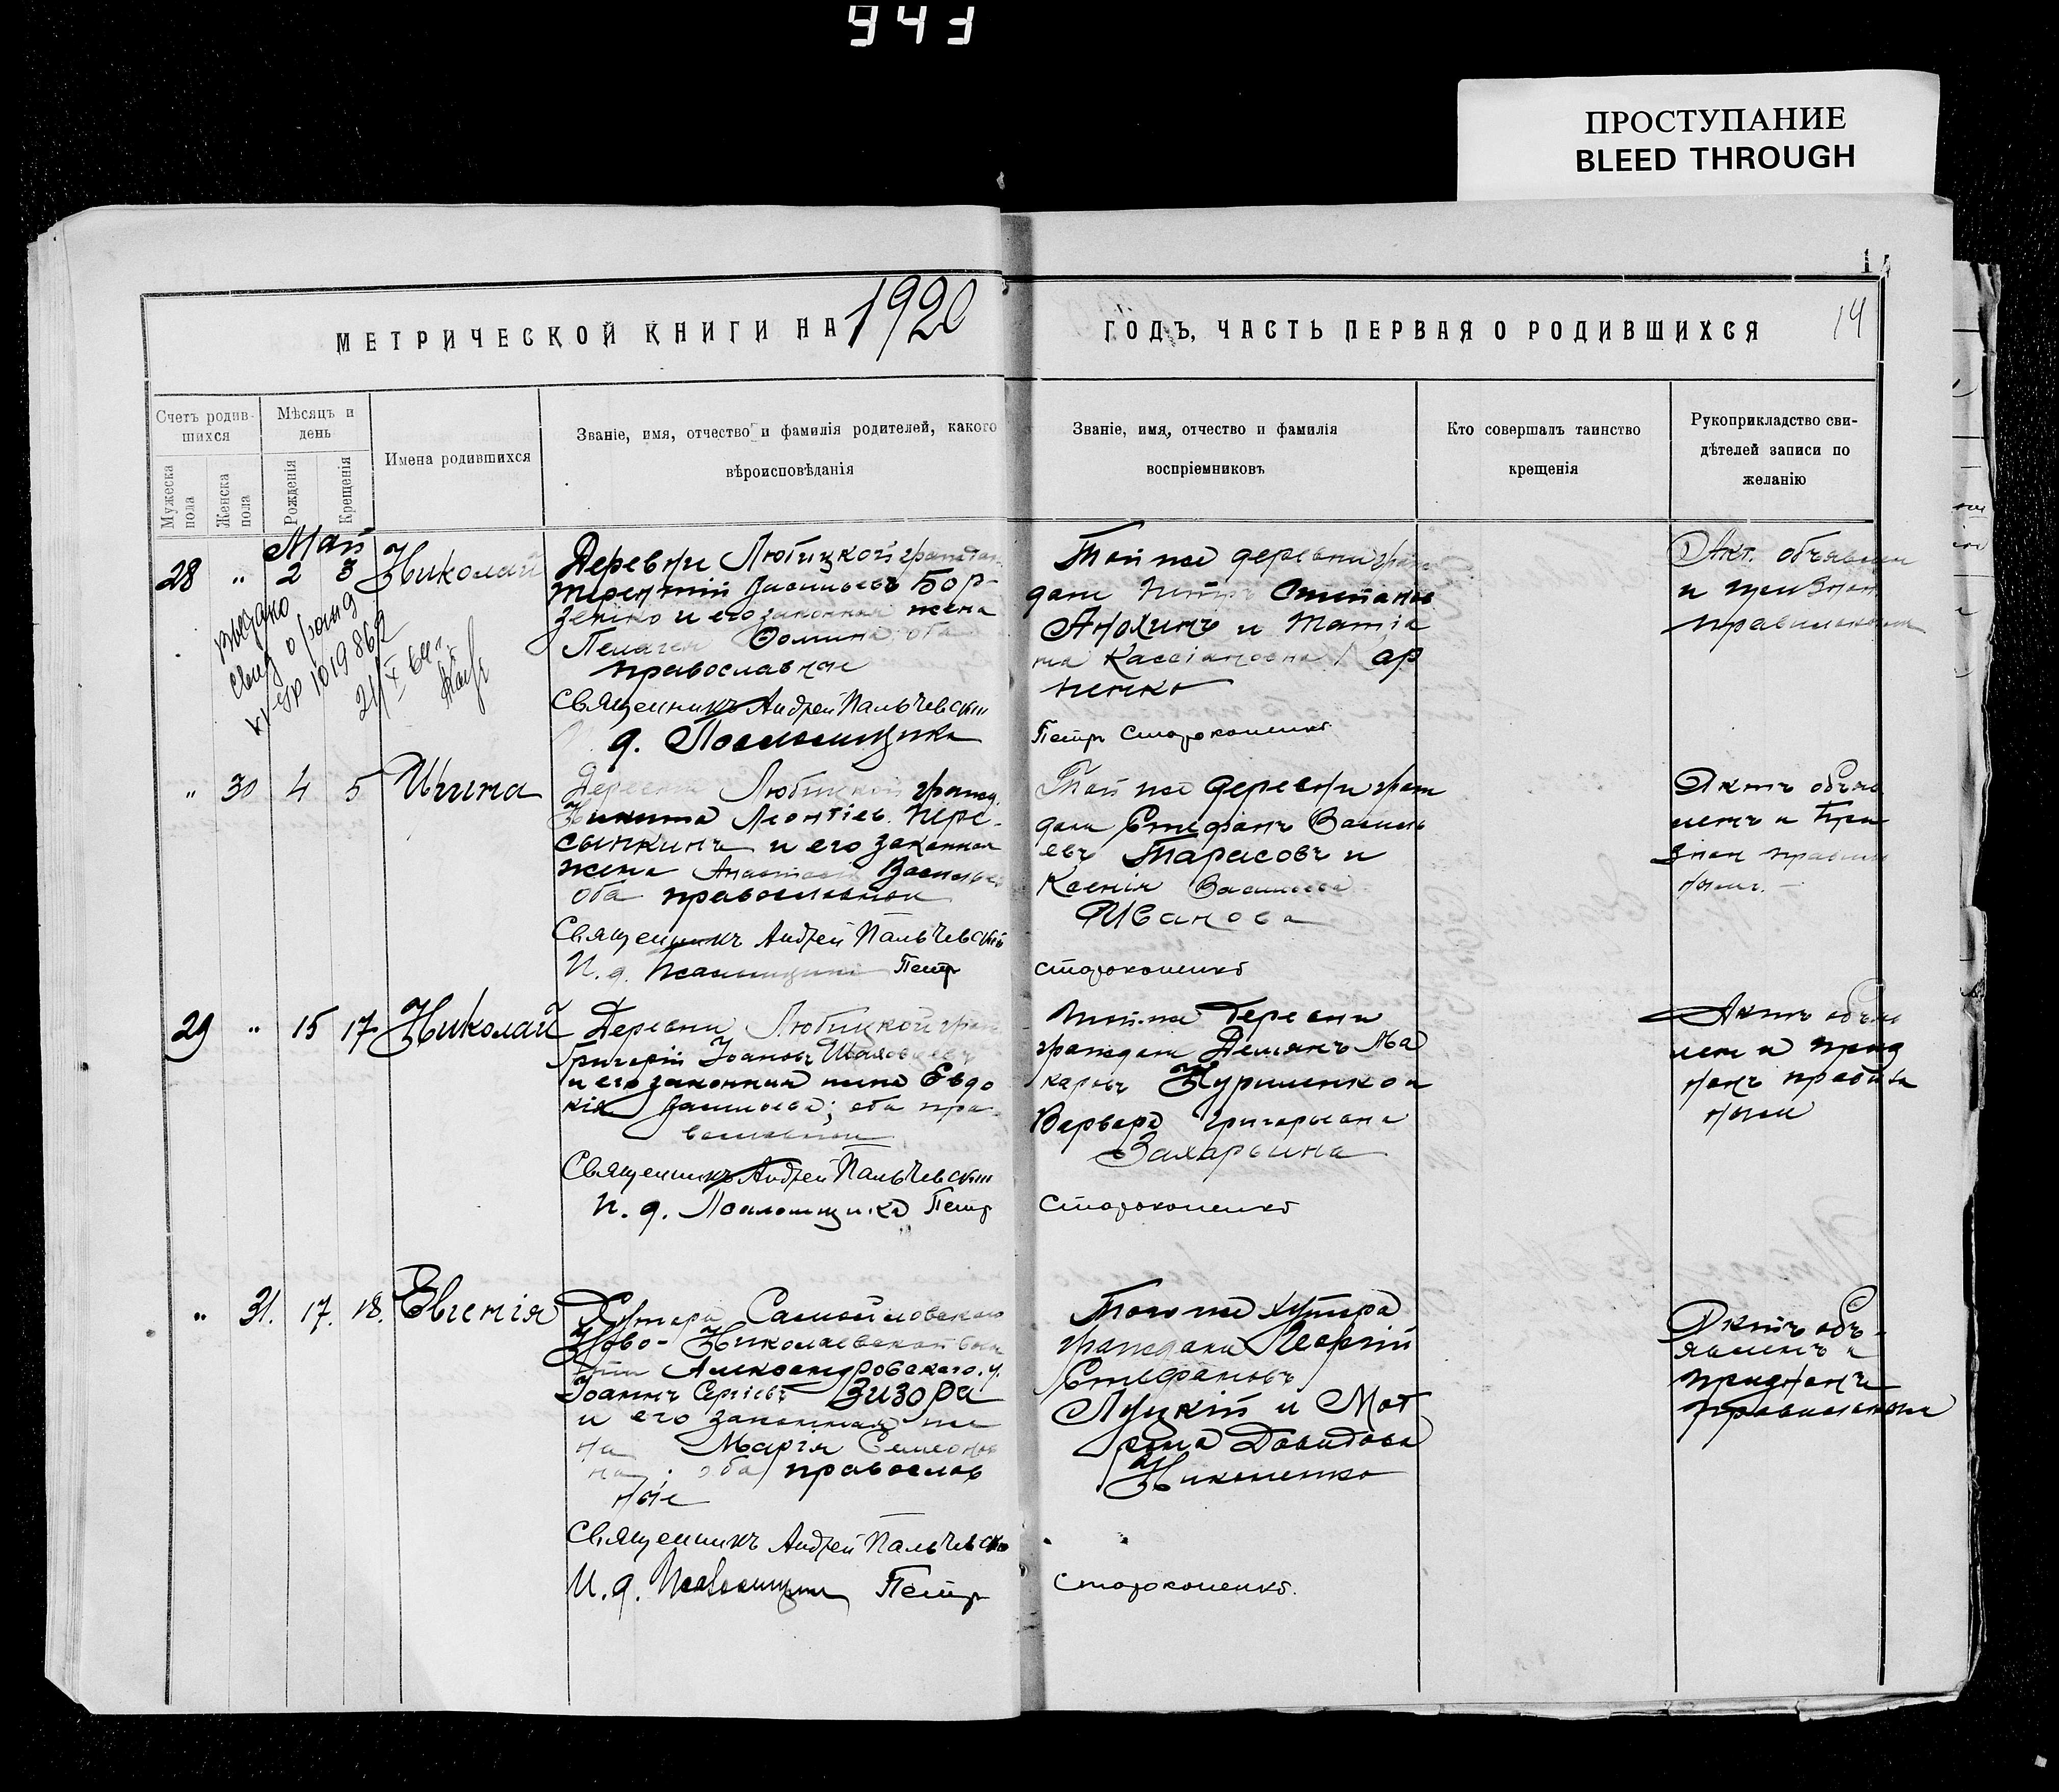 943
ПРОСТУПАНИЕ
BLEED THROUGH
МЕТРИЧЕСКОЙ КНИГИ НА 1920
ГОДЪ, ЧАСТЬ ПЕРВАЯ О РОДИВШИХСЯ
14
Счетъ родив-
шихся
Мужеска пола
Женска пола
Мѣсяцъ и
день
Рожденія
Крещенія
Имена родившихся
Званіе, имя, отчество и фамилія родителей, какого
вѣроисповѣданія
Званіе, имя, отчество и фамилія
воспріемниковъ
Кто совершалъ таинство
крещенія
Рукоприкладство сви-
дѣтелей записи по
желанію
Май
28 " 2 3 Николай
свид о рожд
1019862
21/X 64г.
Деревни Любицкой граждан
Терентій Васильевъ Бор-
зенко и его законная жена
Пелагея Фомина оба
православные
Священникъ Андрей Пальчевскій
д. Псаломщика
Той же деревни граж
дане Петръ Степановъ
Анохинъ и Татіа
на Кассіановна Кар
пенко
Петр Сторокопенко
Акт. объявлен
и признан
правильным
" 30 4 5 Ирина
Деревни Любицкой гражд.
Никита Леонтіев. Пере-
сыпкинъ и его законная
жена Анастасія Васильев
оба православные
Священникъ Андрей Пальчевскій
И. д. Псаломщика Петр
Той же деревни граж
дане Стефанъ Василь
евъ Тарасовъ и
Ксенія Васильева
Иванова
Сторокопенко
Актъ объяв
ленъ и При
знан правиль
ным.
29 " 15 17 Николай
Деревни Любицкой граж
Григорій Іоановъ
и его законная жена Евдо
кія Васильева; оба пра-
вославные
Священникъ Андрей Пальчевскій
И. д. Псаломщика Петр
Той же деревни
граждане Демянъ Ма
каровъ Куриленко и
Варвара Григорьевна
Захарьина
Сторокопенко
Актъ объяв
лен и приз
нанъ правиль
ным
" 31. 17. 18. Евгенія
Хутора Самойловскаго
Ново-Николаевской воло
сти Александровскаго у.
Іоаннъ Сергіевъ Зизора
и его законная же
на Марія Семенов
на; оба православ
ные
Священникъ Андрей Пальчевскій
И. д. Псаломщика Петр
Того же хутора
граждане Георгій
Стефановъ
Луцкій и Мот
рона Давидова
Никоненко
Сторокопенко.
Актъ объ-
явленъ и
признанъ
правильным